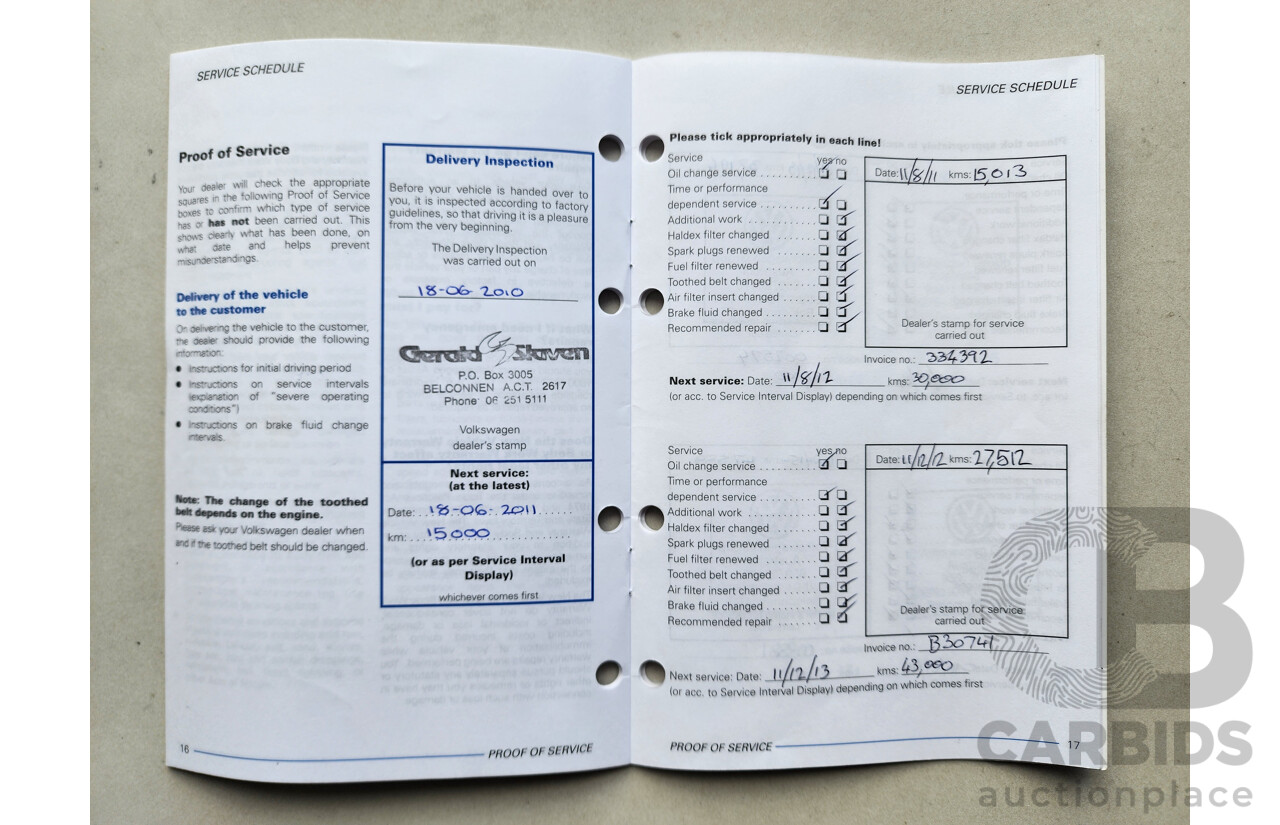 SERVICE SCHEDULE
Proof of Service
Your dealer will check the appropriate
squares in the following Proof of Service
boxes to confirm which type of service
has or has not been carried out. This
shows clearly what has been done, on
what date and helps prevent
misunderstandings.
Delivery of the vehicle
to the customer
On delivering the vehicle to the customer,
the dealer should provide the following
information:
● Instructions for initial driving period
● Instructions on service intervals
(explanation of "severe operating
conditions")
● Instructions on brake fluid change
intervals.
Note: The change of the toothed
belt depends on the engine.
Please ask your Volkswagen dealer when
and if the toothed belt should be changed.
Delivery Inspection
Before your vehicle is handed over to
you, it is inspected according to factory
guidelines, so that driving it is a pleasure
from the very beginning.
The Delivery Inspection
was carried out on
18-06-2010
Gerald Slaven
P.O. Box 3005
BELCONNEN A.C.T. 2617
Phone: 06 251 5111
Volkswagen
dealer's stamp
Next service:
(at the latest)
Date: 18-06-2011
km: 15000
(or as per Service Interval
Display)
whichever comes first
16 PROOF OF SERVICE
SERVICE SCHEDULE
Please tick appropriately in each line!
Service yes no
Oil change service
Time or performance
dependent service
Additional work
Haldex filter changed
Spark plugs renewed
Fuel filter renewed
Toothed belt changed
Air filter insert changed
Brake fluid changed
Recommended repair
Date: 11/8/11 kms: 15,013
Dealer's stamp for service
carried out
Invoice no.: 334392
Next service: Date: 11/8/12 kms: 30,000
(or acc. to Service Interval Display) depending on which comes first
Service yes no
Oil change service
Time or performance
dependent service
Additional work
Haldex filter changed
Spark plugs renewed
Fuel filter renewed
Toothed belt changed
Air filter insert changed
Brake fluid changed
Recommended repair
Date: 11/12/12 kms: 27,512
Dealer's stamp for service
carried out
Invoice no.: B30741
Next service: Date: 11/12/13 kms: 43,000
(or acc. to Service Interval Display) depending on which comes first
PROOF OF SERVICE 17
CARBIDS
auctionplace